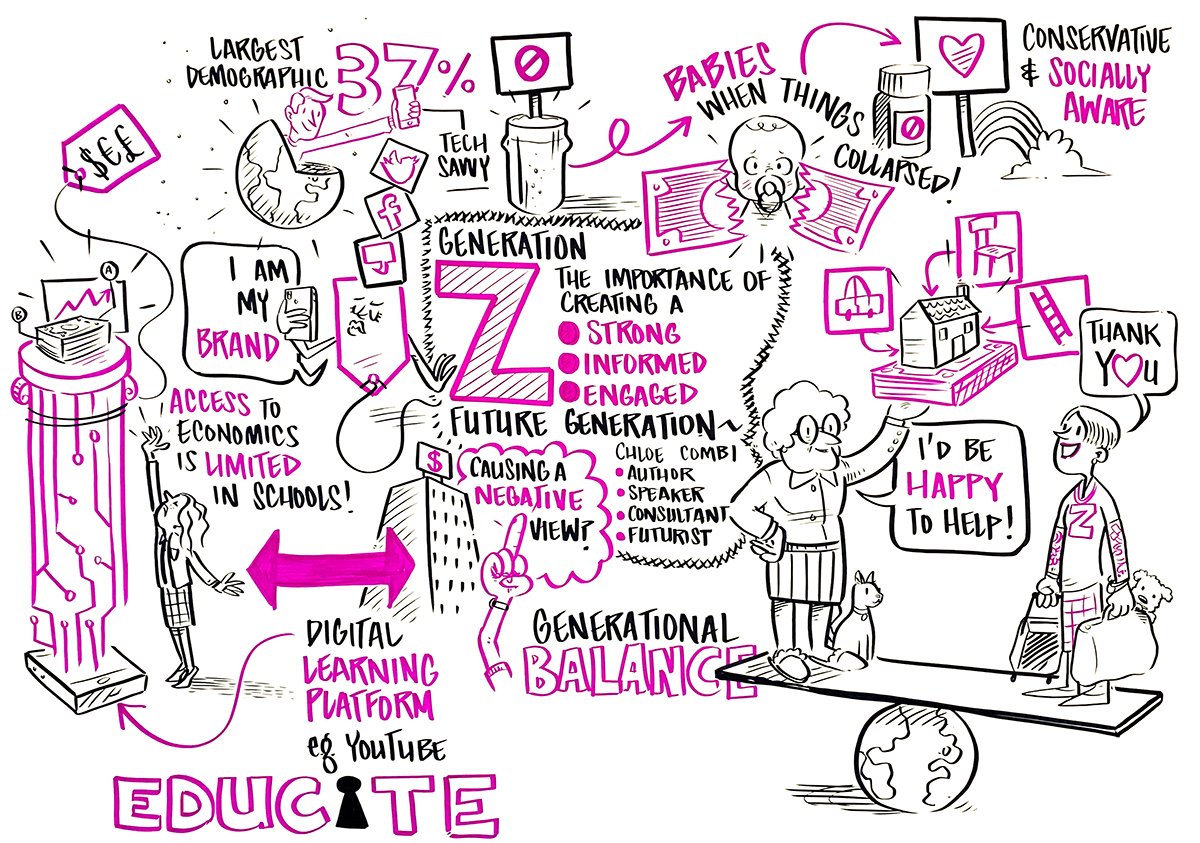 LARGEST
DEMOGRAPHIC
37%
TECH
SAVVY
BABIES
WHEN THINGS
COLLAPSED!
CONSERVATIVE
& SOCIALLY
AWARE
$€£
A
B
I AM
MY
BRAND
f
GENERATION
Z
THE IMPORTANCE OF
CREATING A
STRONG
INFORMED
ENGAGED
FUTURE GENERATION
CHLOE COMBI
• AUTHOR
• SPEAKER
• CONSULTANT
• FUTURIST
ACCESS TO
ECONOMICS
IS LIMITED
IN SCHOOLS!
$
CAUSING A
NEGATIVE
VIEW?
THANK
YOU
I'D BE
HAPPY
TO HELP!
Z
GENERATIONAL
BALANCE
DIGITAL
LEARNING
PLATFORM
eg YOUTUBE
EDUCATE